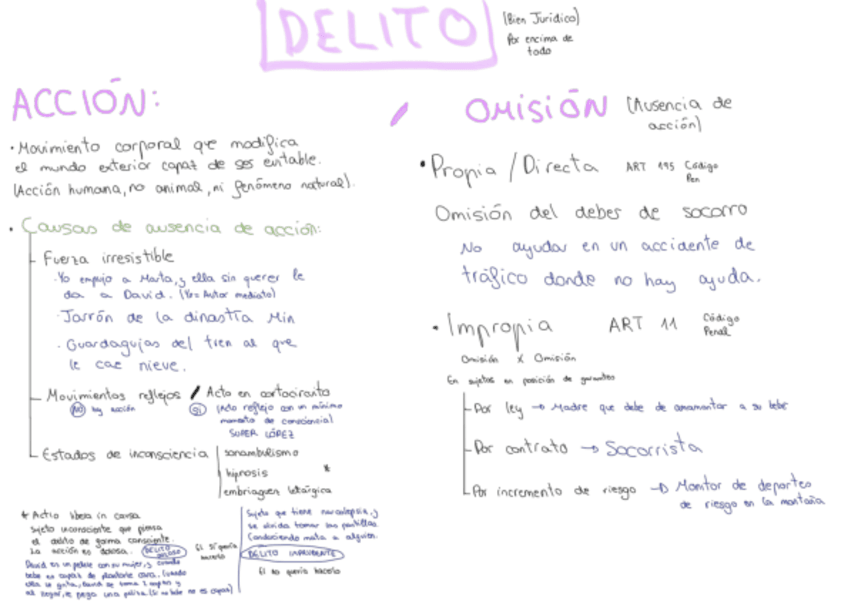 DELITO
(Bien Jurídico)
Por encima de
todo
ACCIÓN:
· Movimiento corporal que modifica
el mundo exterior capaz de ser evitable.
(Acción humana, no animal, ni fenómeno natural).
· Causas de ausencia de acción:
Fuerza irresistible
· Yo empujo a Marta, y ella sin querer le
da a David. (Yo = Autor mediato)
· Jarrón de la dinastía Min
· Guardagujas del tren al que
le cae nieve.
Movimientos reflejos / Acto en cortocircuito
NO hay acción
SÍ (Acto reflejo con un mínimo
momento de consciencia)
SUPER LÓPEZ
Estados de inconsciencia
sonambulismo
hipnosis *
embriaguez letárgica
* Actio libera in causa
Sujeto inconsciente que piensa
el delito de forma consciente.
La acción es dolosa. DELITO DOLOSO
Él sí quería
hacerlo
David es un pelele con su mujer, y cuando
bebe es capaz de plantarle cara. Cuando
ella le grita, David se toma 2 copas y
al llegar, le pega una paliza. (Si no bebe no es capaz)
Sujeto que tiene narcolepsia, y
se olvida tomar las pastillas.
Conduciendo mata a alguien.
DELITO IMPRUDENTE
Él no quería hacerlo
OMISIÓN (Ausencia de
acción)
· Propia / Directa ART 195 Código
Pen
Omisión del deber de socorro
No ayudar en un accidente de
tráfico donde no hay ayuda.
· Impropia ART 11 Código
Penal
Omisión x Omisión
En sujetos en posición de garantes
Por ley → Madre que debe de amamantar a su bebe
Por contrato → Socorrista
Por incremento de riesgo → Monitor de deportes
de riesgo en la montaña